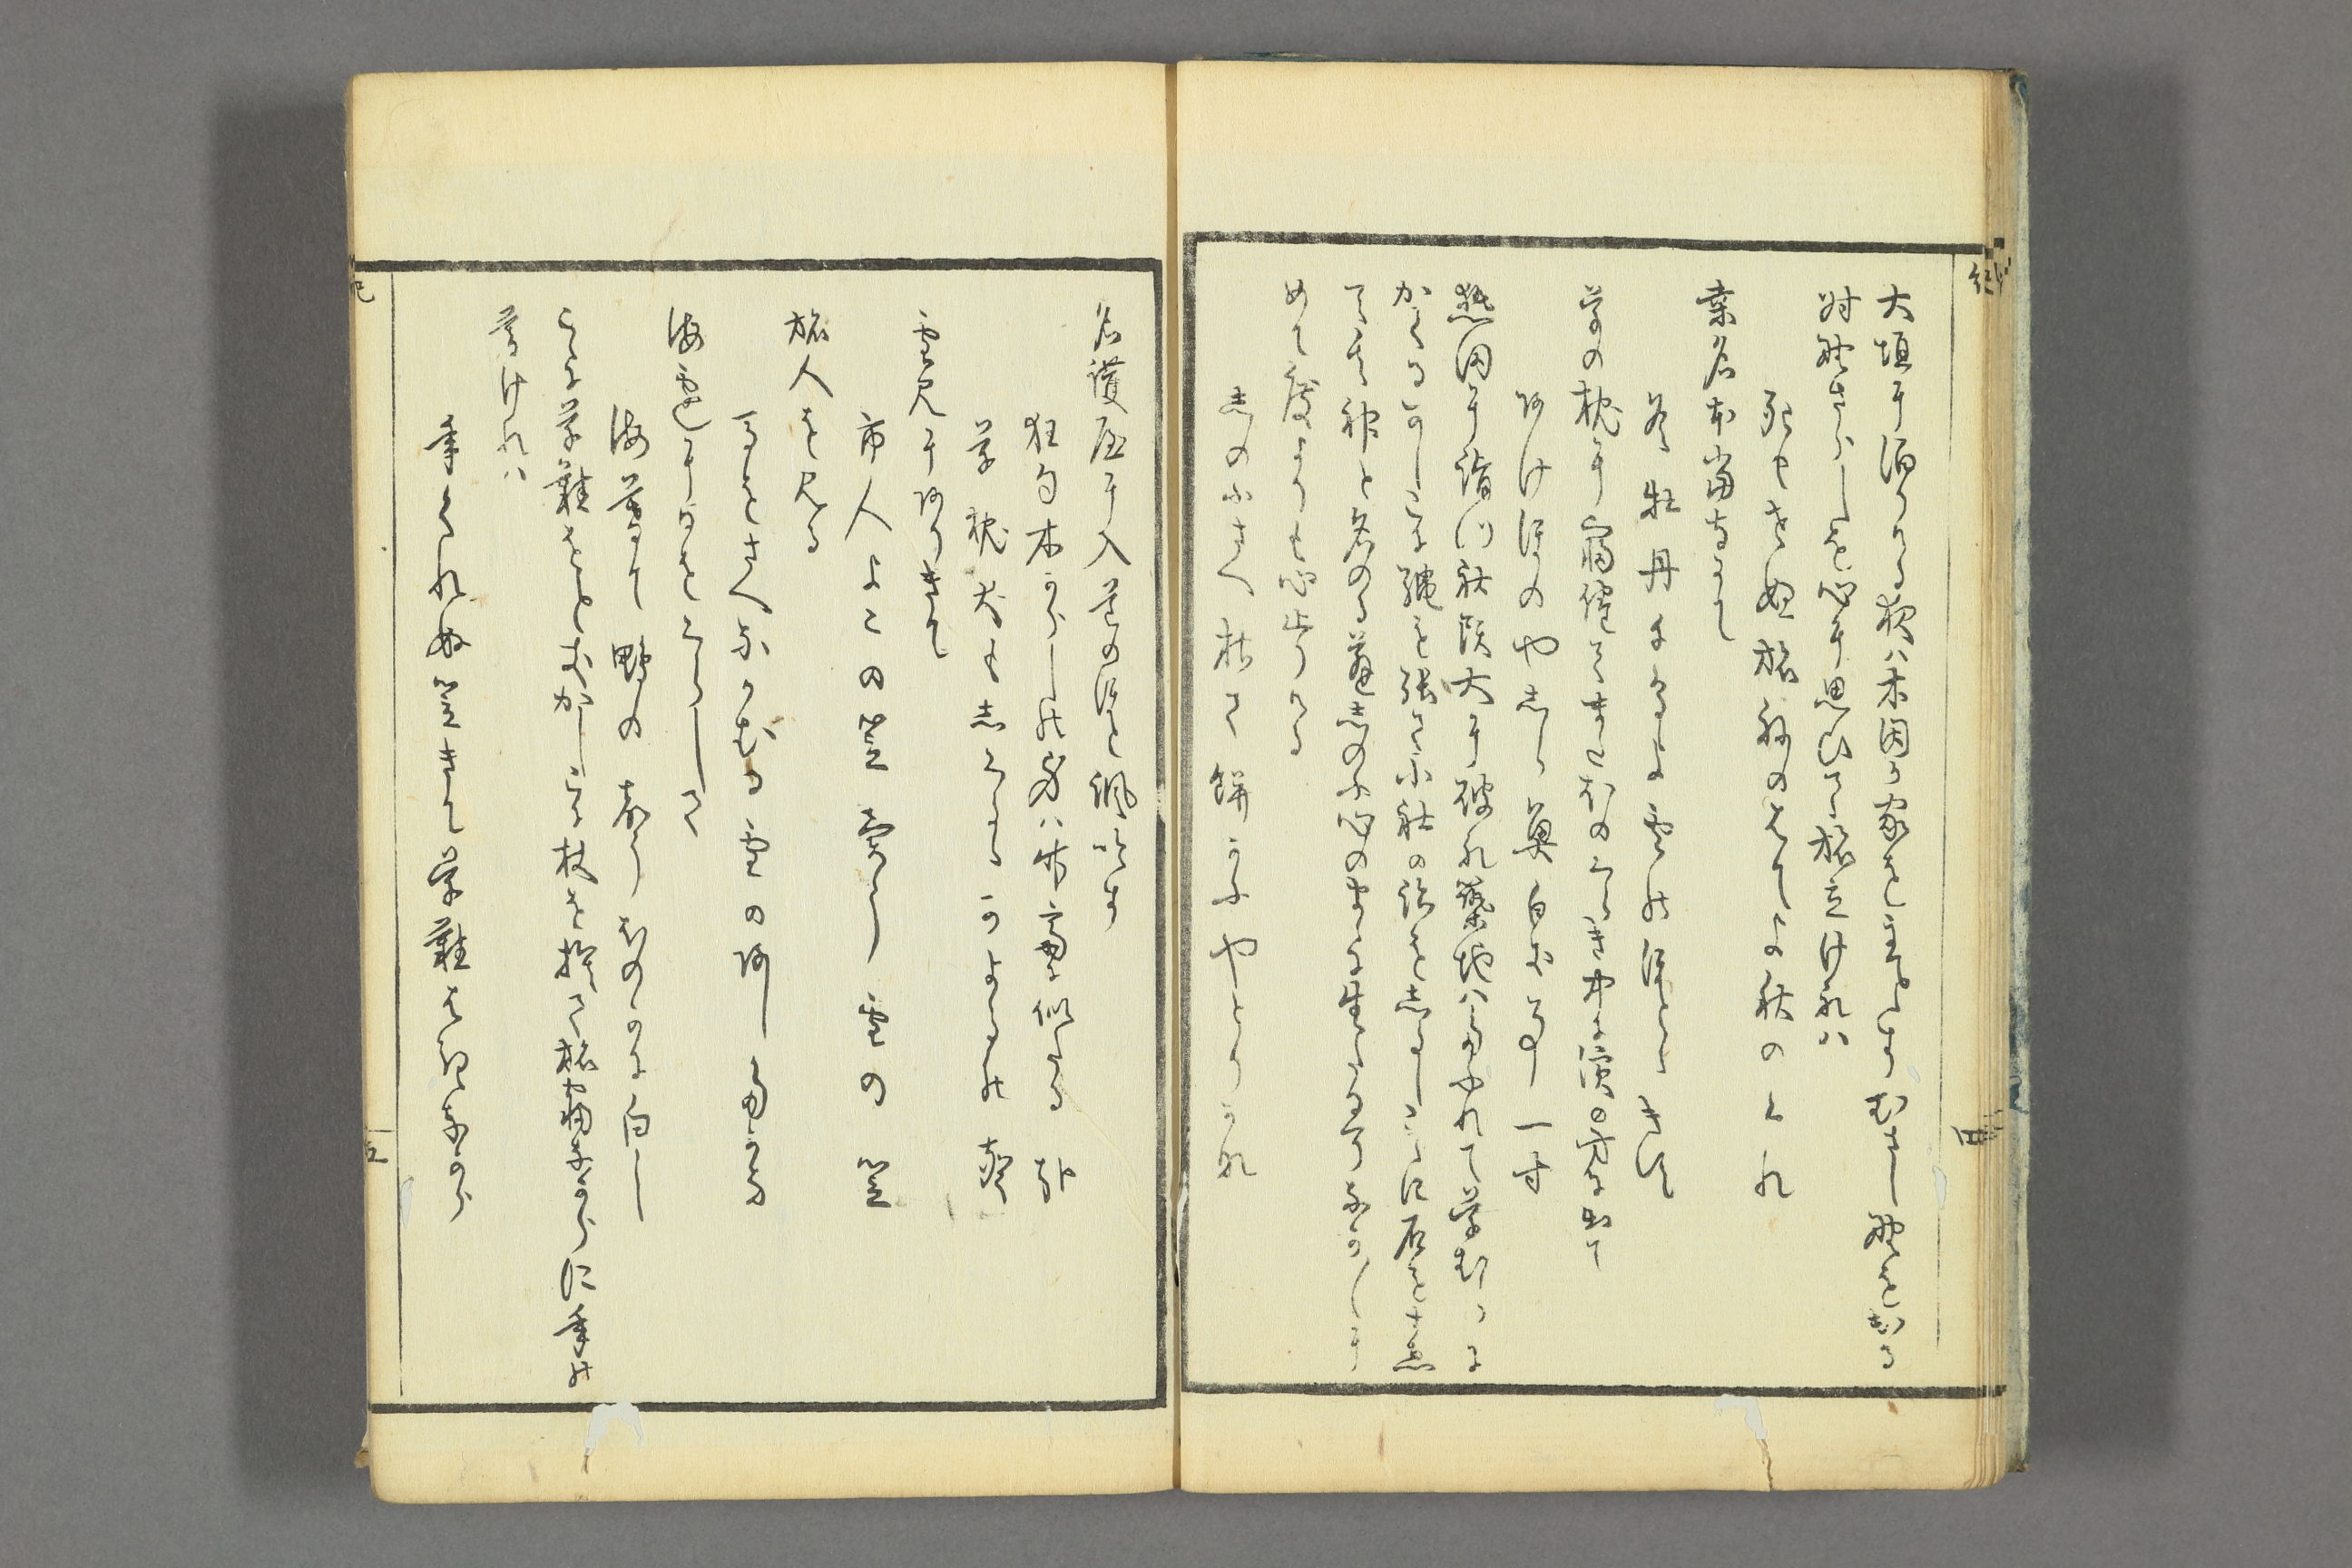 大垣に泊りける夜ハ木因か家をあるしとすむさし野を出る
時野さらしを心に思ひて旅立けれハ
死にもせぬ旅ねのはてよ秋のくれ
桑名本當寺にて
冬牡丹よちとりよ雪のほとゝきす
草の枕に寐侘てまたほのくらき中に濱の方に出て
あけほのやしら魚白き事一寸
熱田に詣つ社頭大に破れ築地ハたふれて草むらに
かくるかしこに縄を張て小社の跡をしるしこゝに石をすゑ
て其神と名のる蓬しのふ心のまゝに生たるそなか〳〵に
めてたきよりも心止りける
しのふさへ枯て餅かふやとりかな
名護屋に入道のほと諷吟す
狂句木からしの身ハ竹齋に似たる哉
草枕犬もしくるゝかよるの聲
雪見にありきて
市人よこの笠賣らう雪の笠
旅人を見る
馬をさへなかむる雪のあしたかな
海邊に日をくらして
海暮て鴨の聲ほのかに白し
こゝに草鞋をときかしこに杖を捨て旅寐なからに年の
暮けれハ
年くれぬ笠きて草鞋はきなから